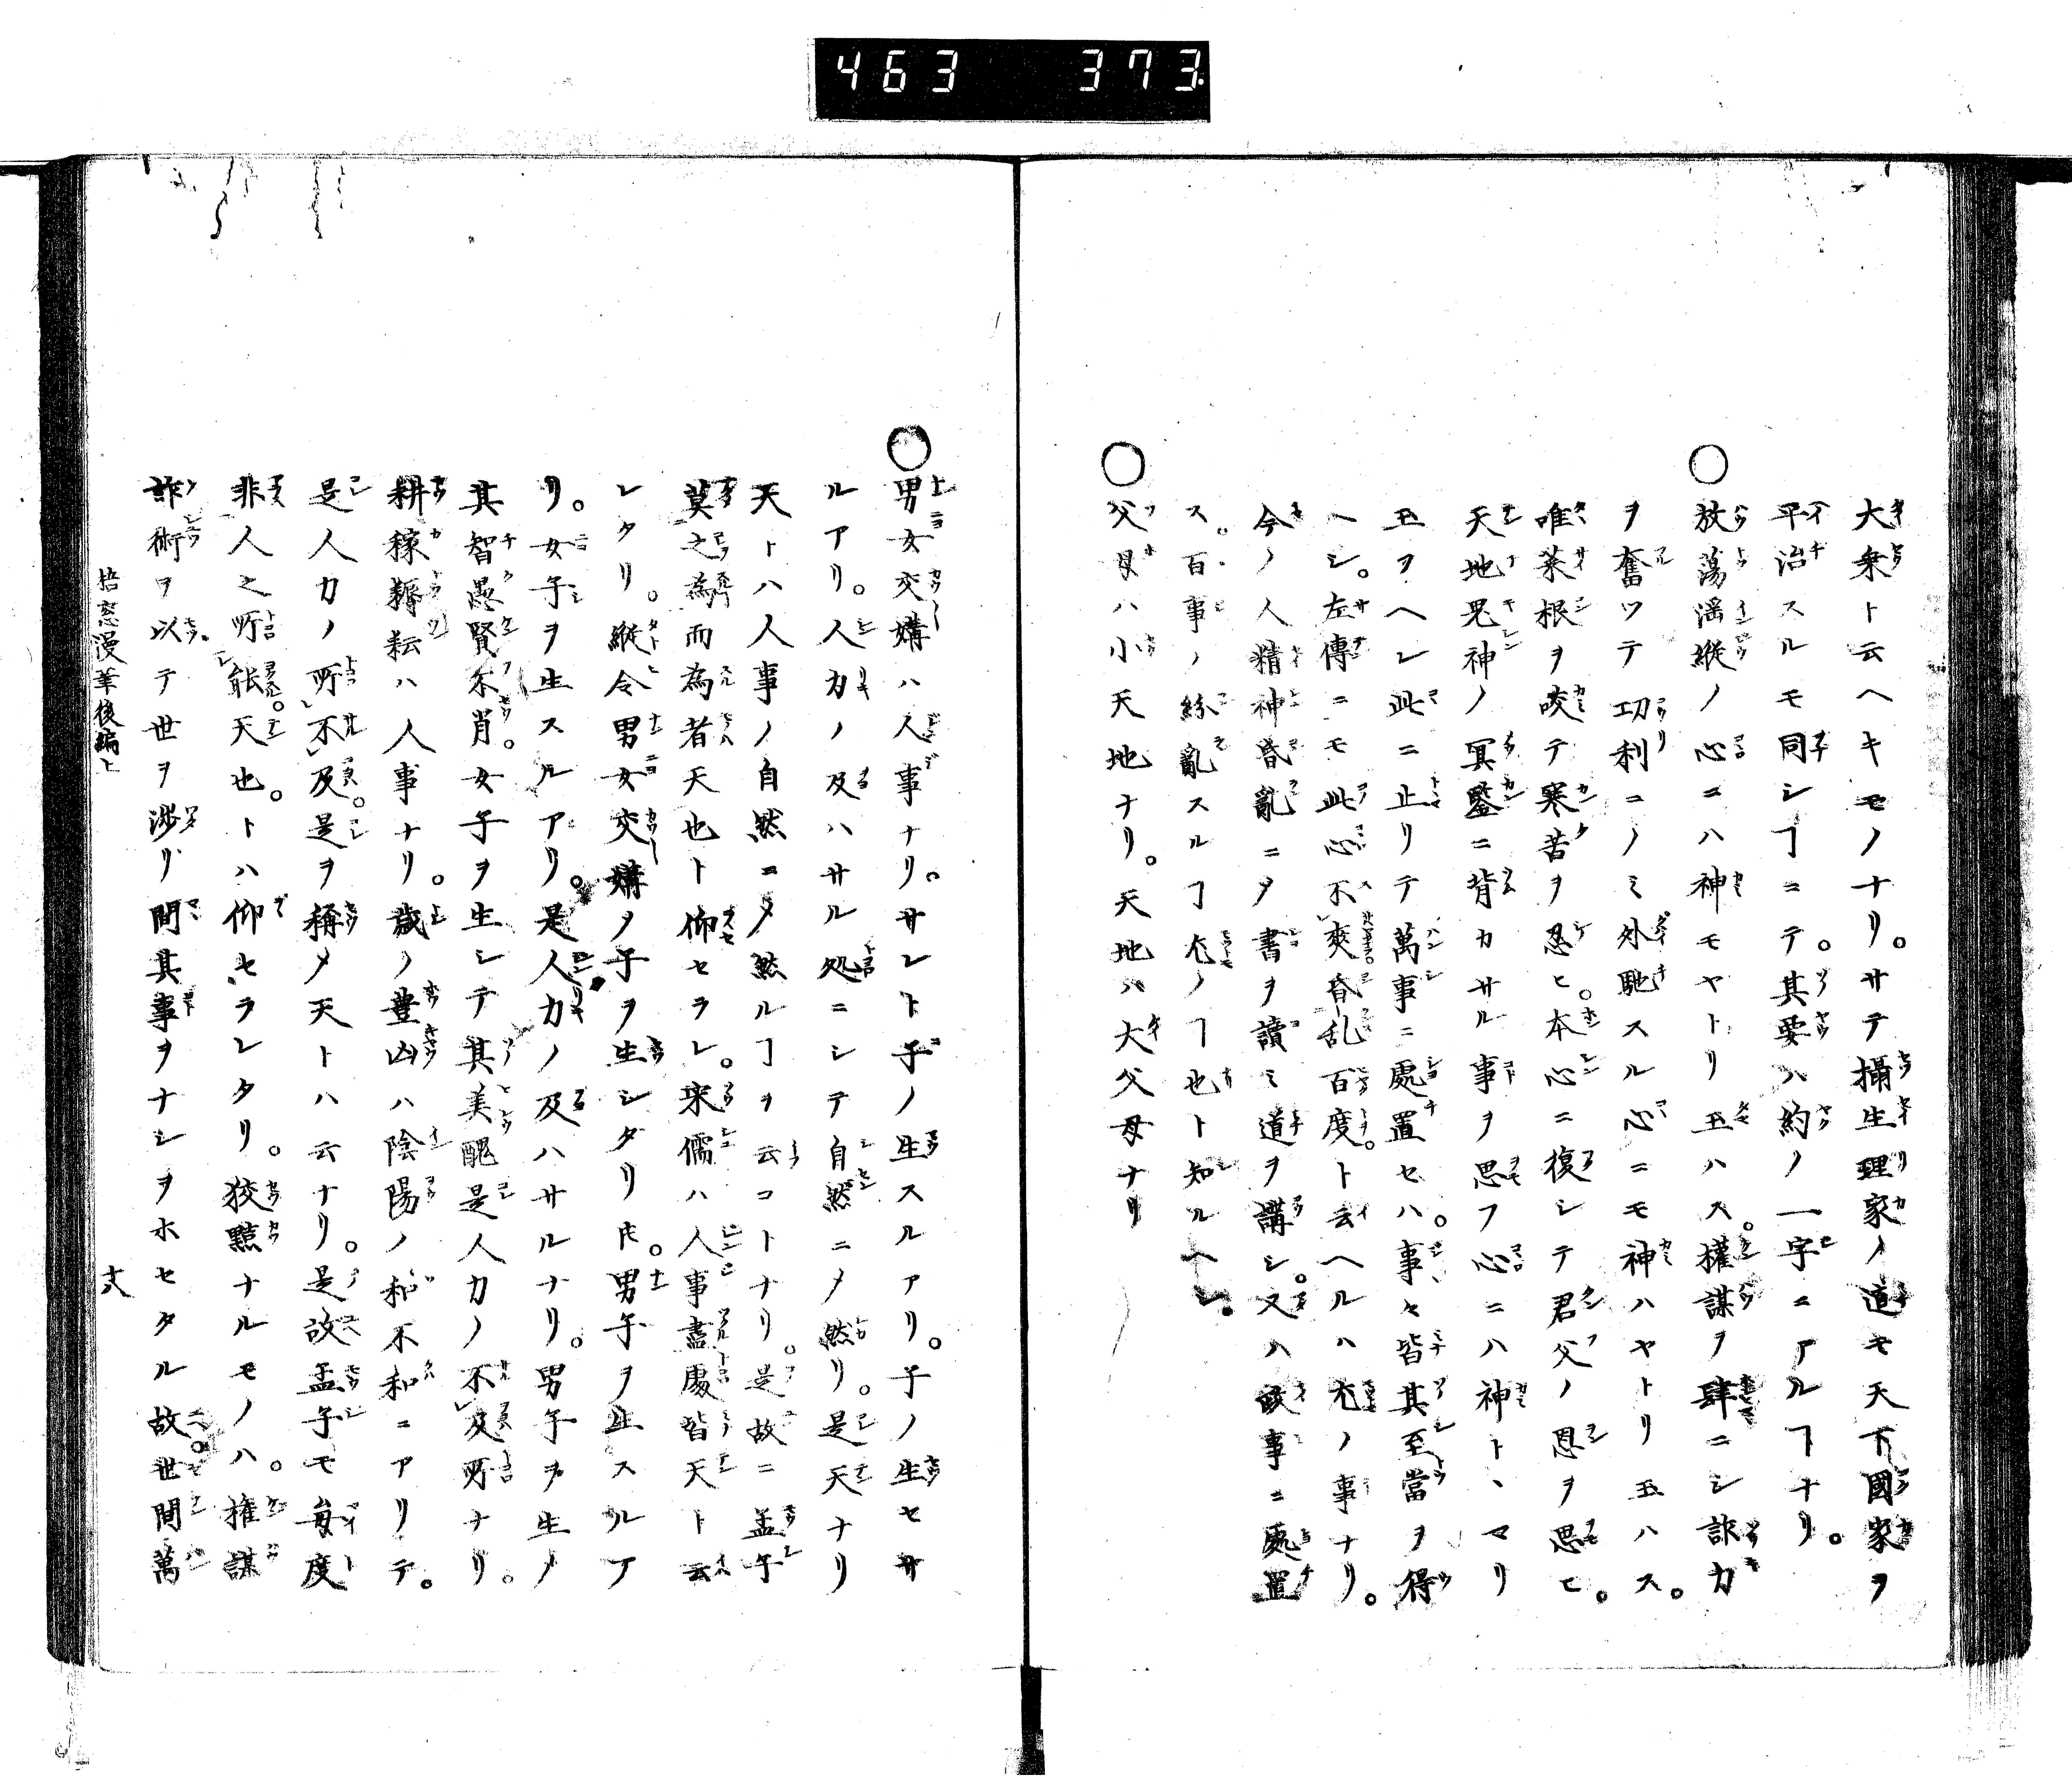 463 373
大乗ト云ヘキモノナリ。サテ攝生理家ノ道モ天下國家ヲ
平治スルモ同シヿニテ。其要ハ約ノ一字ニアルヿナリ。
○放蕩滛縱ノ心ニハ神モヤトリ玉ハス。權謀ヲ肆ニシ詐力
ヲ奮ツテ功利ニノミ外馳スル心ニモ神ハヤトリ玉ハス。
唯菜根ヲ咬テ寒苦ヲ忍ヒ。本心ニ復シテ君父ノ恩ヲ思ヒ。
天地鬼神ノ冥鑒ニ背カサル事ヲ思フ心ニハ神トヽマリ
玉フヘレ此ニ止リテ萬事ニ處置セハ。事々皆其至當ヲ得
ヘシ。左傳ニモ此心不爽昏乱百度。ト云ヘルハ尤ノ事ナリ。
今ノ人精神昏亂ニメ書ヲ讀ミ道ヲ講シ。又ハ政事ニ處置
ス。百事ノ絲亂スルヿ尤ノヿ也ト知ルヘシ。
○父母ハ小天地ナリ。天地ハ大父母ナリ
○男女交媾ハ人事ナリ。サレト子ノ生スルアリ。子ノ生セサ
ルアリ。人力ノ及ハサル処ニシテ自然ニメ然リ。是天ナリ
天トハ人事ノ自然ニメ然ルヿヲ云コトナリ。是故ニ孟子
莫之為而為者天也ト仰セラレ。宋儒ハ人事盡處皆天ト云
レタリ。縱令男女交媾ノ子ヲ生シタリ𪜈。男子ヲ生スルア
リ。女子ヲ生スルアリ。是人力ノ及ハサルナリ。男子ヲ生メ
其智愚賢不肖。女子ヲ生シテ其美醜是人力ノ不及所ナリ。
耕稼耨耘ハ人事ナリ。歳ノ豊凶ハ陰陽ノ和不和ニアリテ。
是人力ノ所不及。是ヲ稱メ天トハ云ナリ。是故孟子モ毎度
非人之所能。天也。トハ仰セラレタリ。狡黠ナルモノハ。権謀
詐術ヲ以テ世ヲ渉リ間其事ヲナシヲホセタル故世間萬
梧窓漫筆後編上